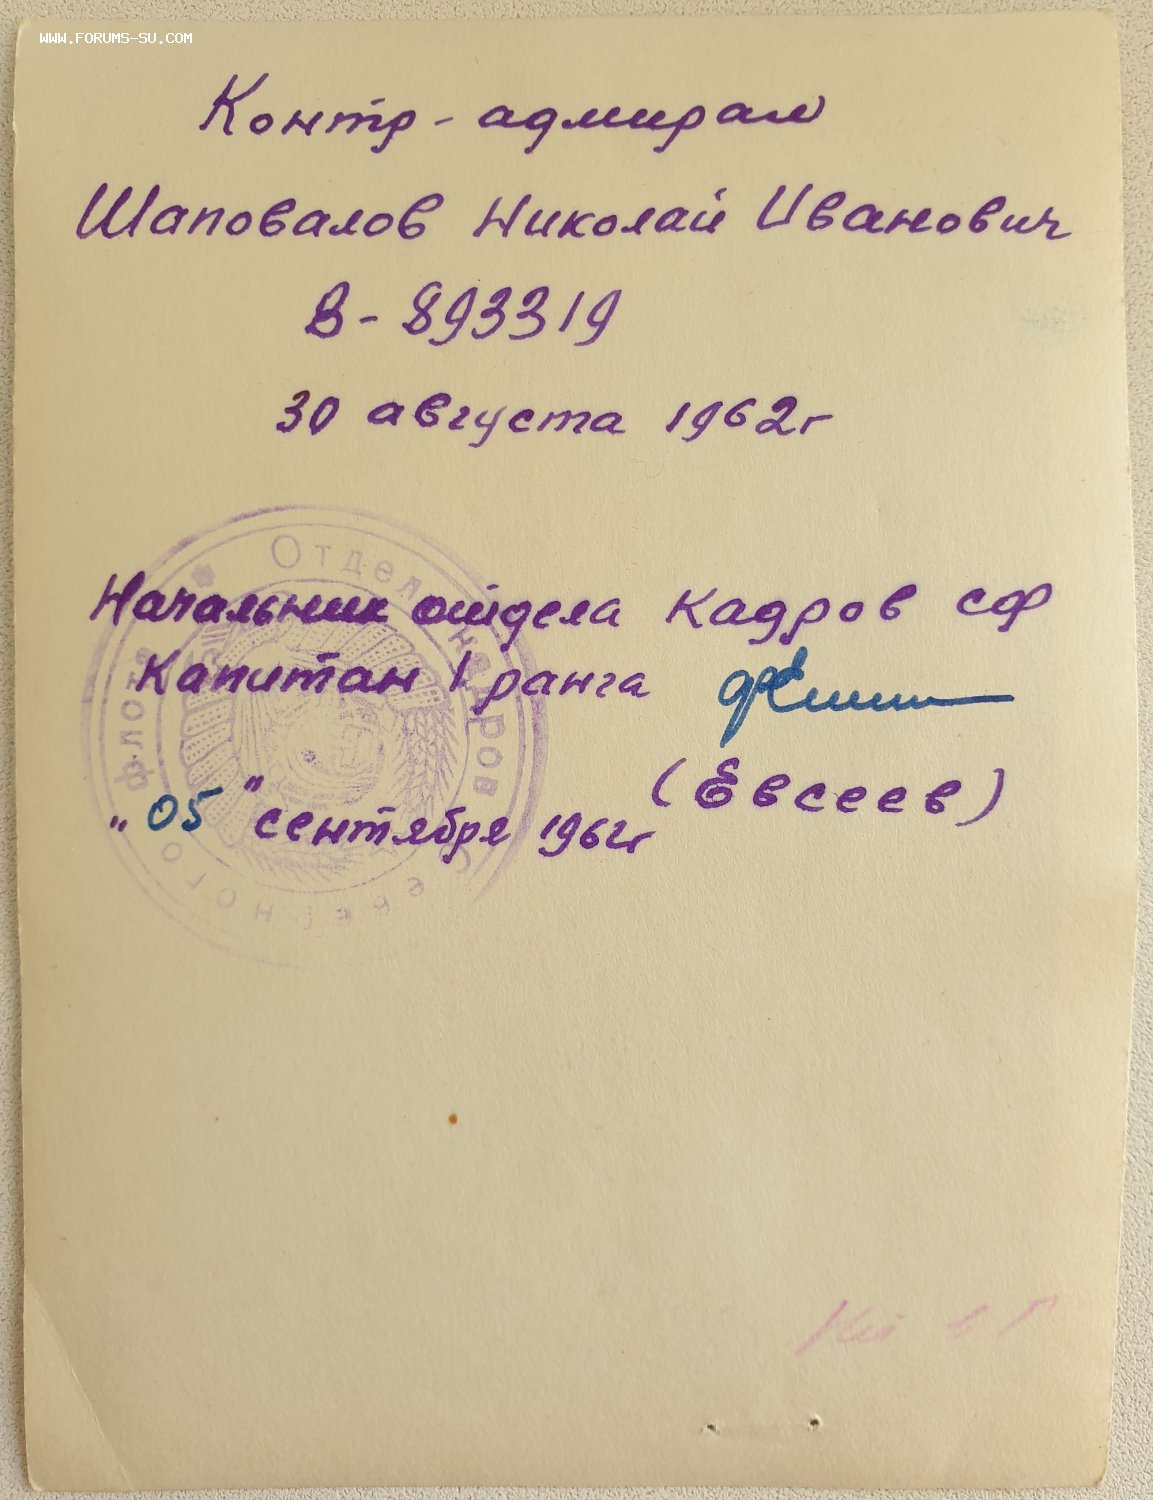 WWW.FORUMS-SU.COM
Контр-адмирал
Шаповалов Николай Иванович
В-893319
30 августа 1962г
Отдел кадров Северного флота
Начальник отдела кадров СФ
Капитан 1 ранга
(Евсеев)
„05" сентября 1962г